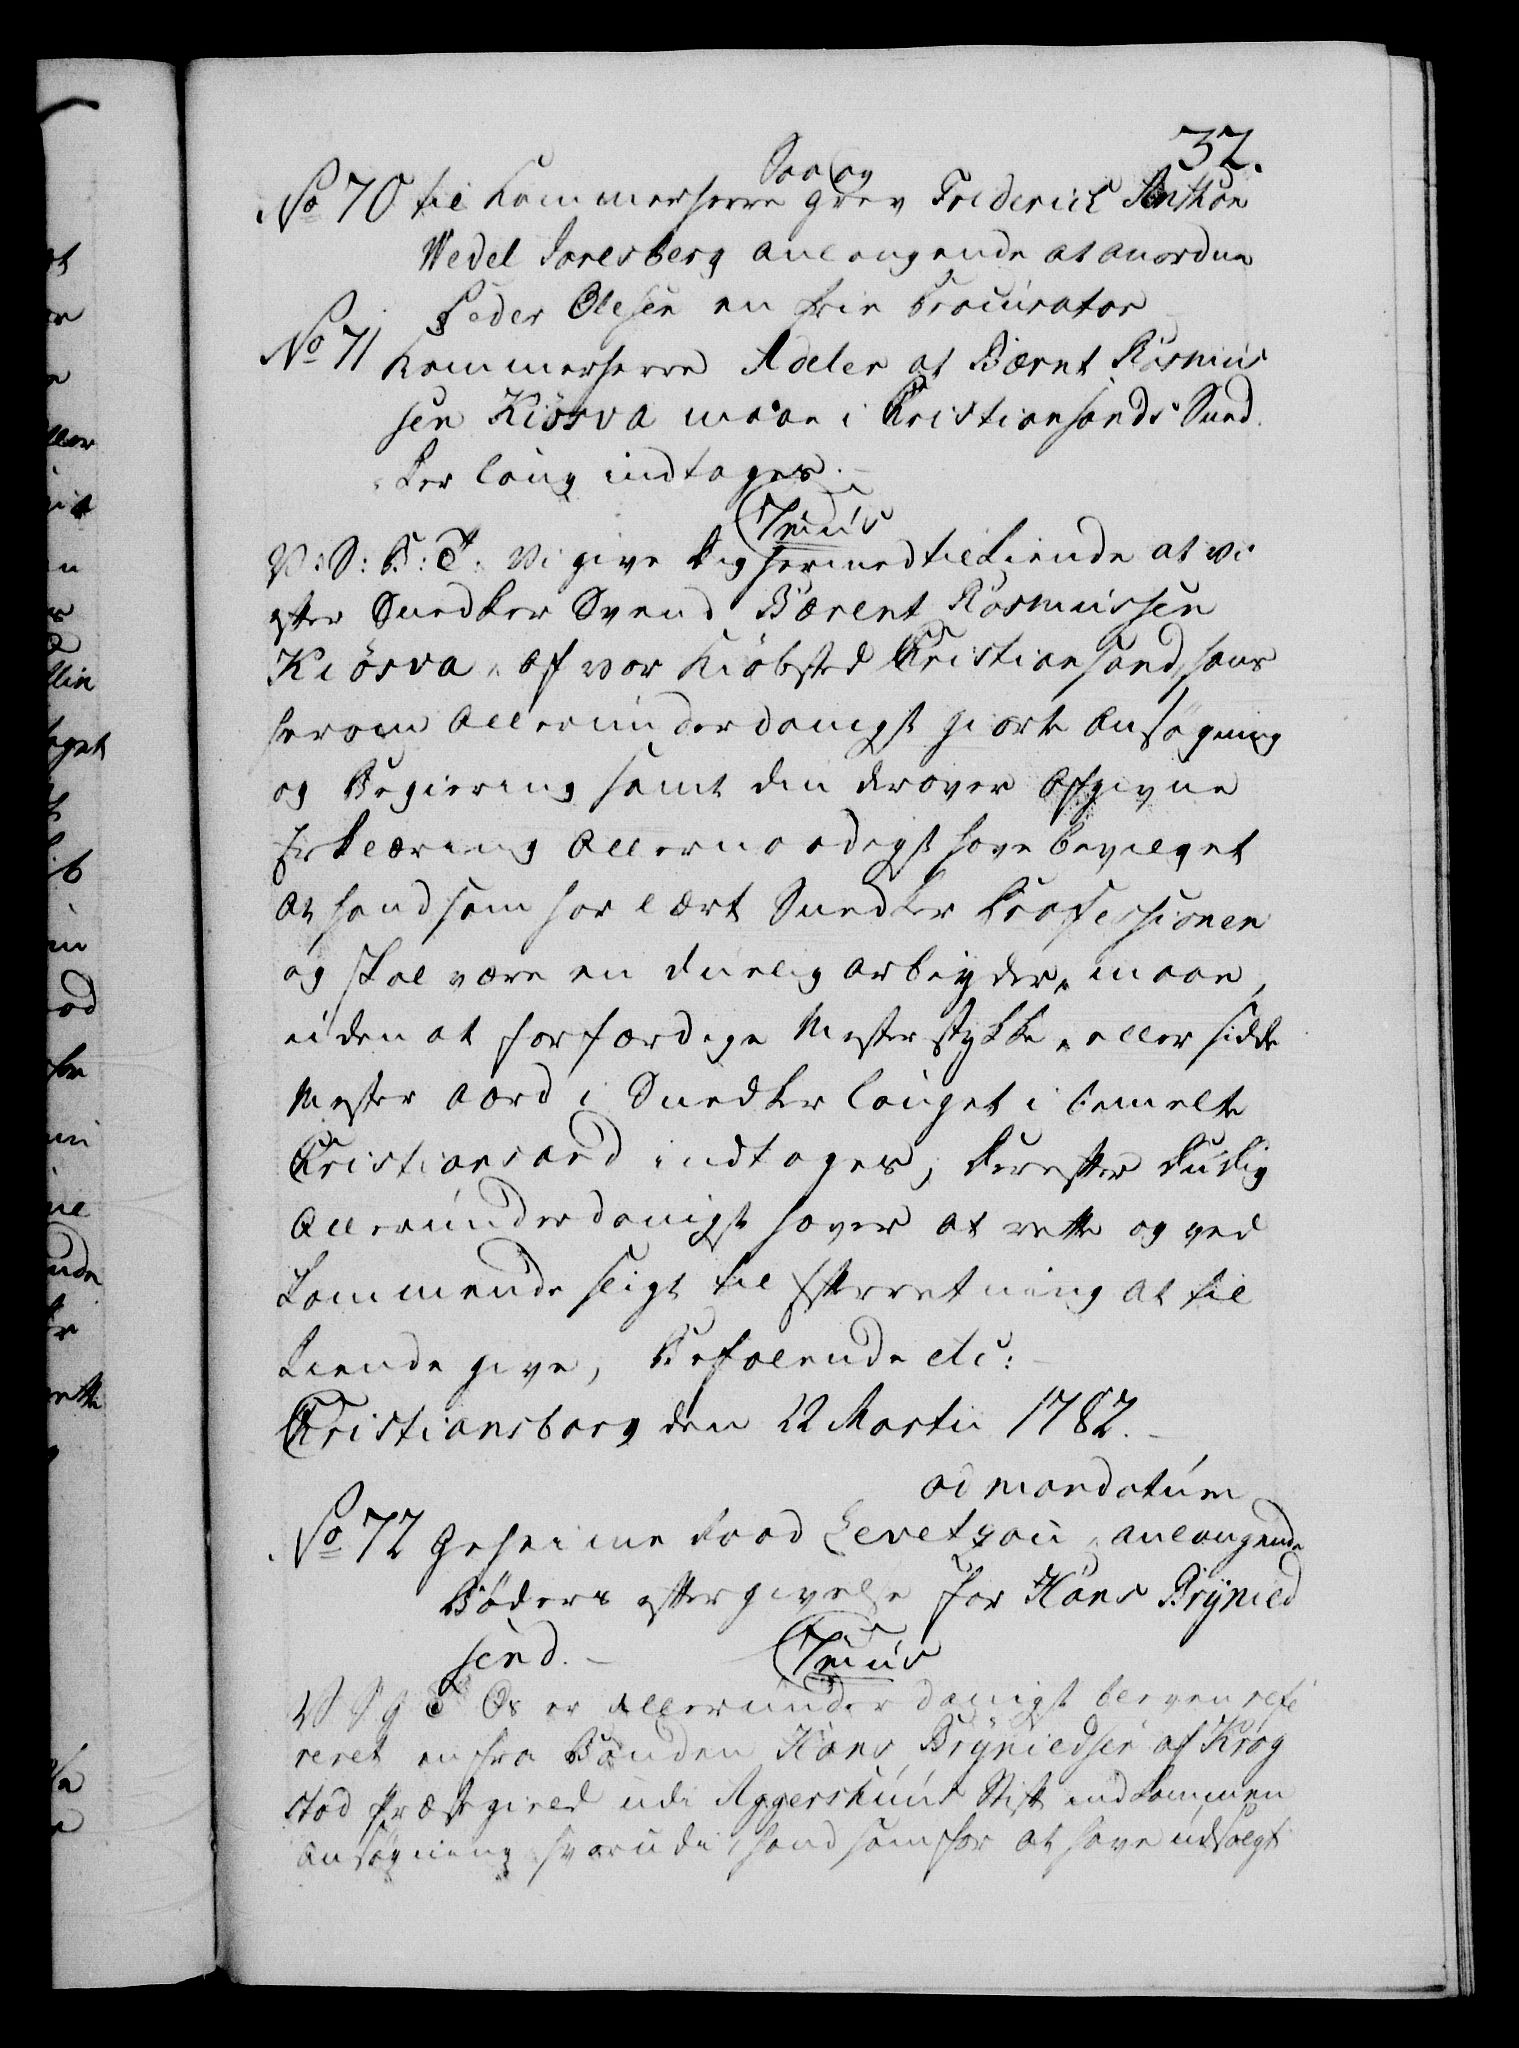 37.
Saa og
No 70 til Kammerherre Grev Frederich Anthon
Wedel Jarlsberg anlangende at anordne
Peder Olesen en frie Procurator
No 71 Kammerherre Adeler at Bærnt Rasmus
sen Kiörva maae i Christiansands Sned
ker laug indtages. –
Imus
V: S: G: T. Vi give Dig hermed tilkiende at vi
efter Snedker Svend Bærent Rasmussen
Kiörva, af vor Kiöbsted Christiansand, hans
herom allerunderdanigst giorte Ansögning
og Begiering samt din derover afgivne
Erklæring allernaadigst have bevilget
at hand som har lært Snedker Professionen
og skal være en duelig arbeyder, maae,
uden at forfærdige Mesterstykke, eller sidde
Mester aar i Snedker lauget i bemelte
Christiansand indtages; Derefter du dig
allerunderdanigst haver at rette og ved
kommende sligt til Efterretning at til
kiende give, Befalende etc: –
Christiansborg den 22 Martii 1782. –
ad mandatum
No 72 Geheime Raad Levetzau, anlangende
Böders eftergivelse for Hans Brynild
send. –
Imus
V S G T Os er allerunderdanigst bleven refe
reret en fra Bonden Hans Brynildsen af Krog
stad Præstegield udi Aggershuus Stift indkommen
ansögning hvorudi, hand som for at have udsolgt